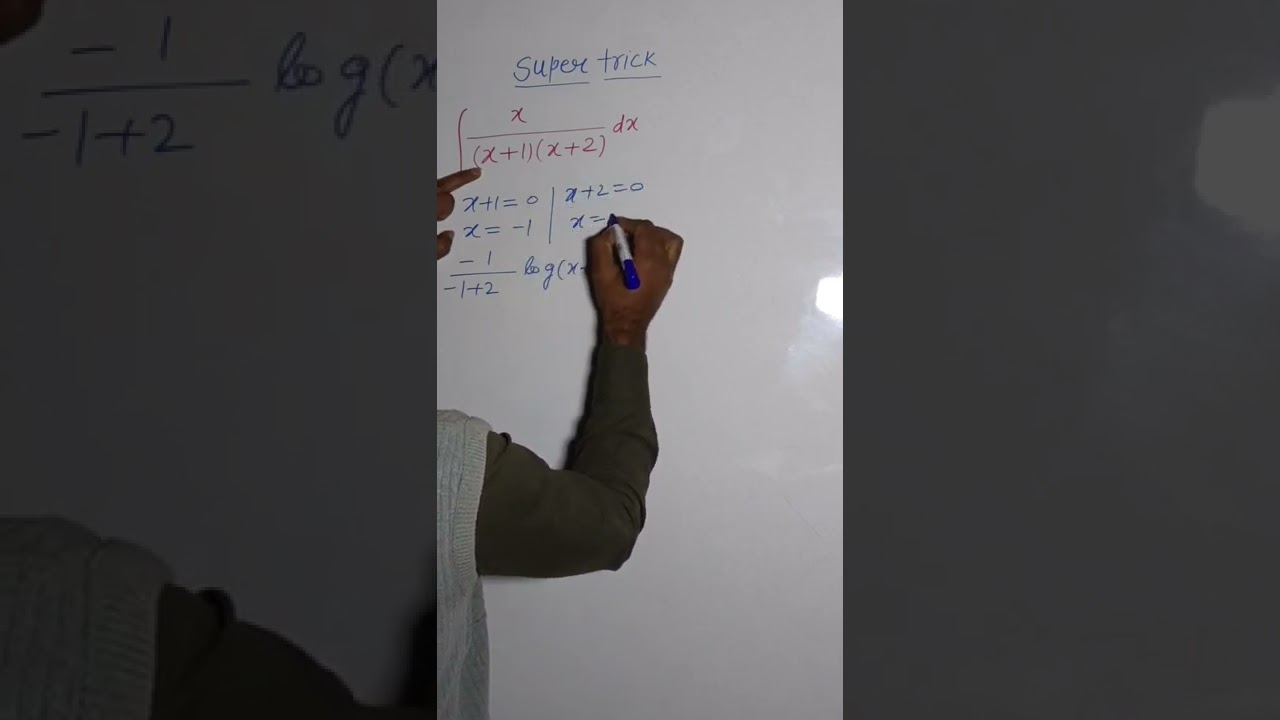 Super trick
∫ x/((x+1)(x+2)) dx
x+1=0 | x+2=0
x= -1 | x=-
-1/(-1+2) log(x+